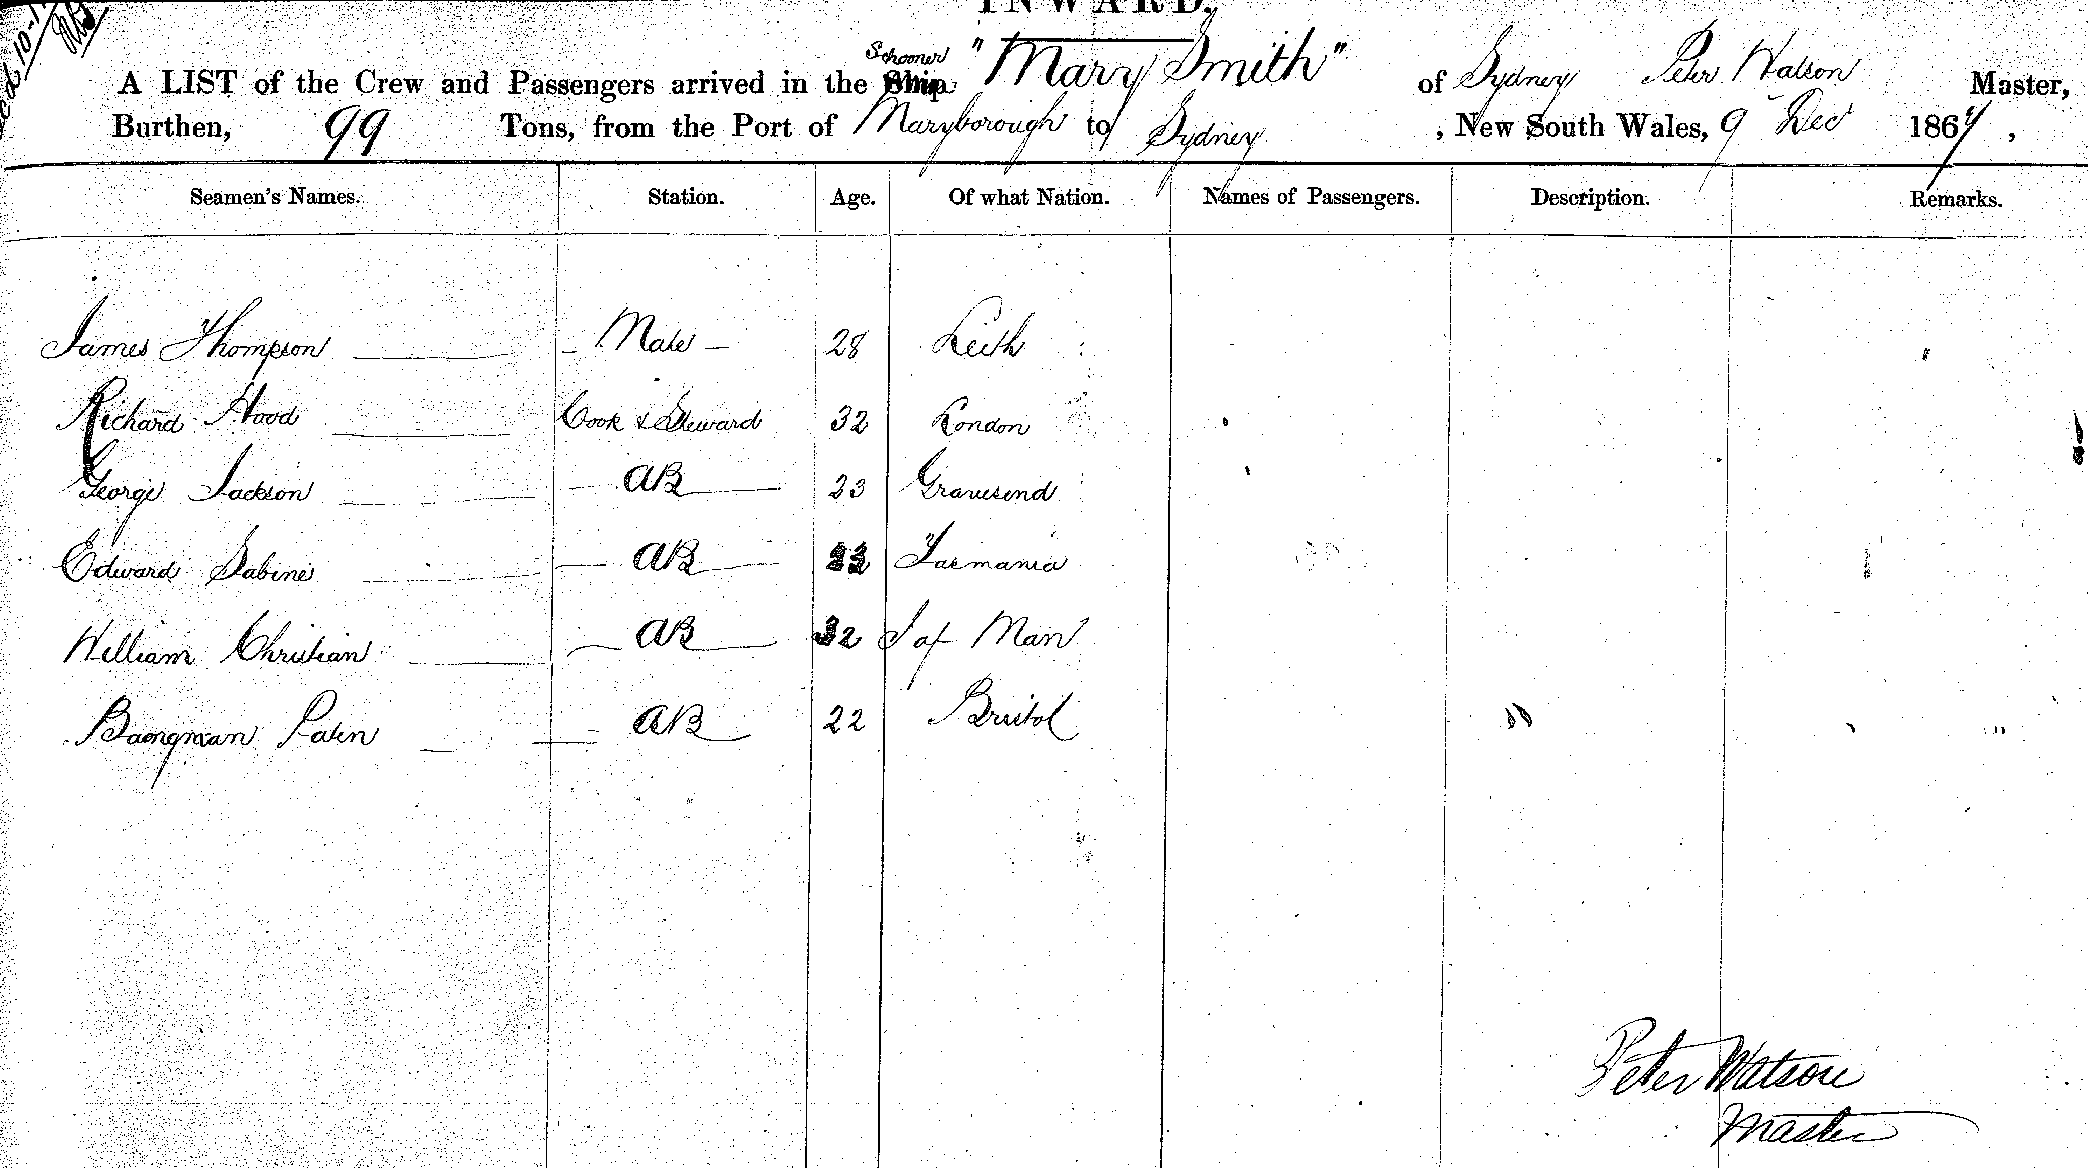 INWARD.
Schooner
A LIST of the Crew and Passengers arrived in the Ship "Mary Smith" of Sydney Peter Watson Master,
Burthen, 99 Tons, from the Port of Maryborough to Sydney, New South Wales, 9 Dec 1867,
Seamen's Names. Station. Age. Of what Nation. Names of Passengers. Description. Remarks.
James Thompson Mate 28 Leith
Richard Hood Cook & Steward 32 London
George Jackson AB 23 Gravesend
Edward Sabine AB Tasmania
William Christian AB 32 I of Man
AB 22 Bristol
Peter Watson
Master